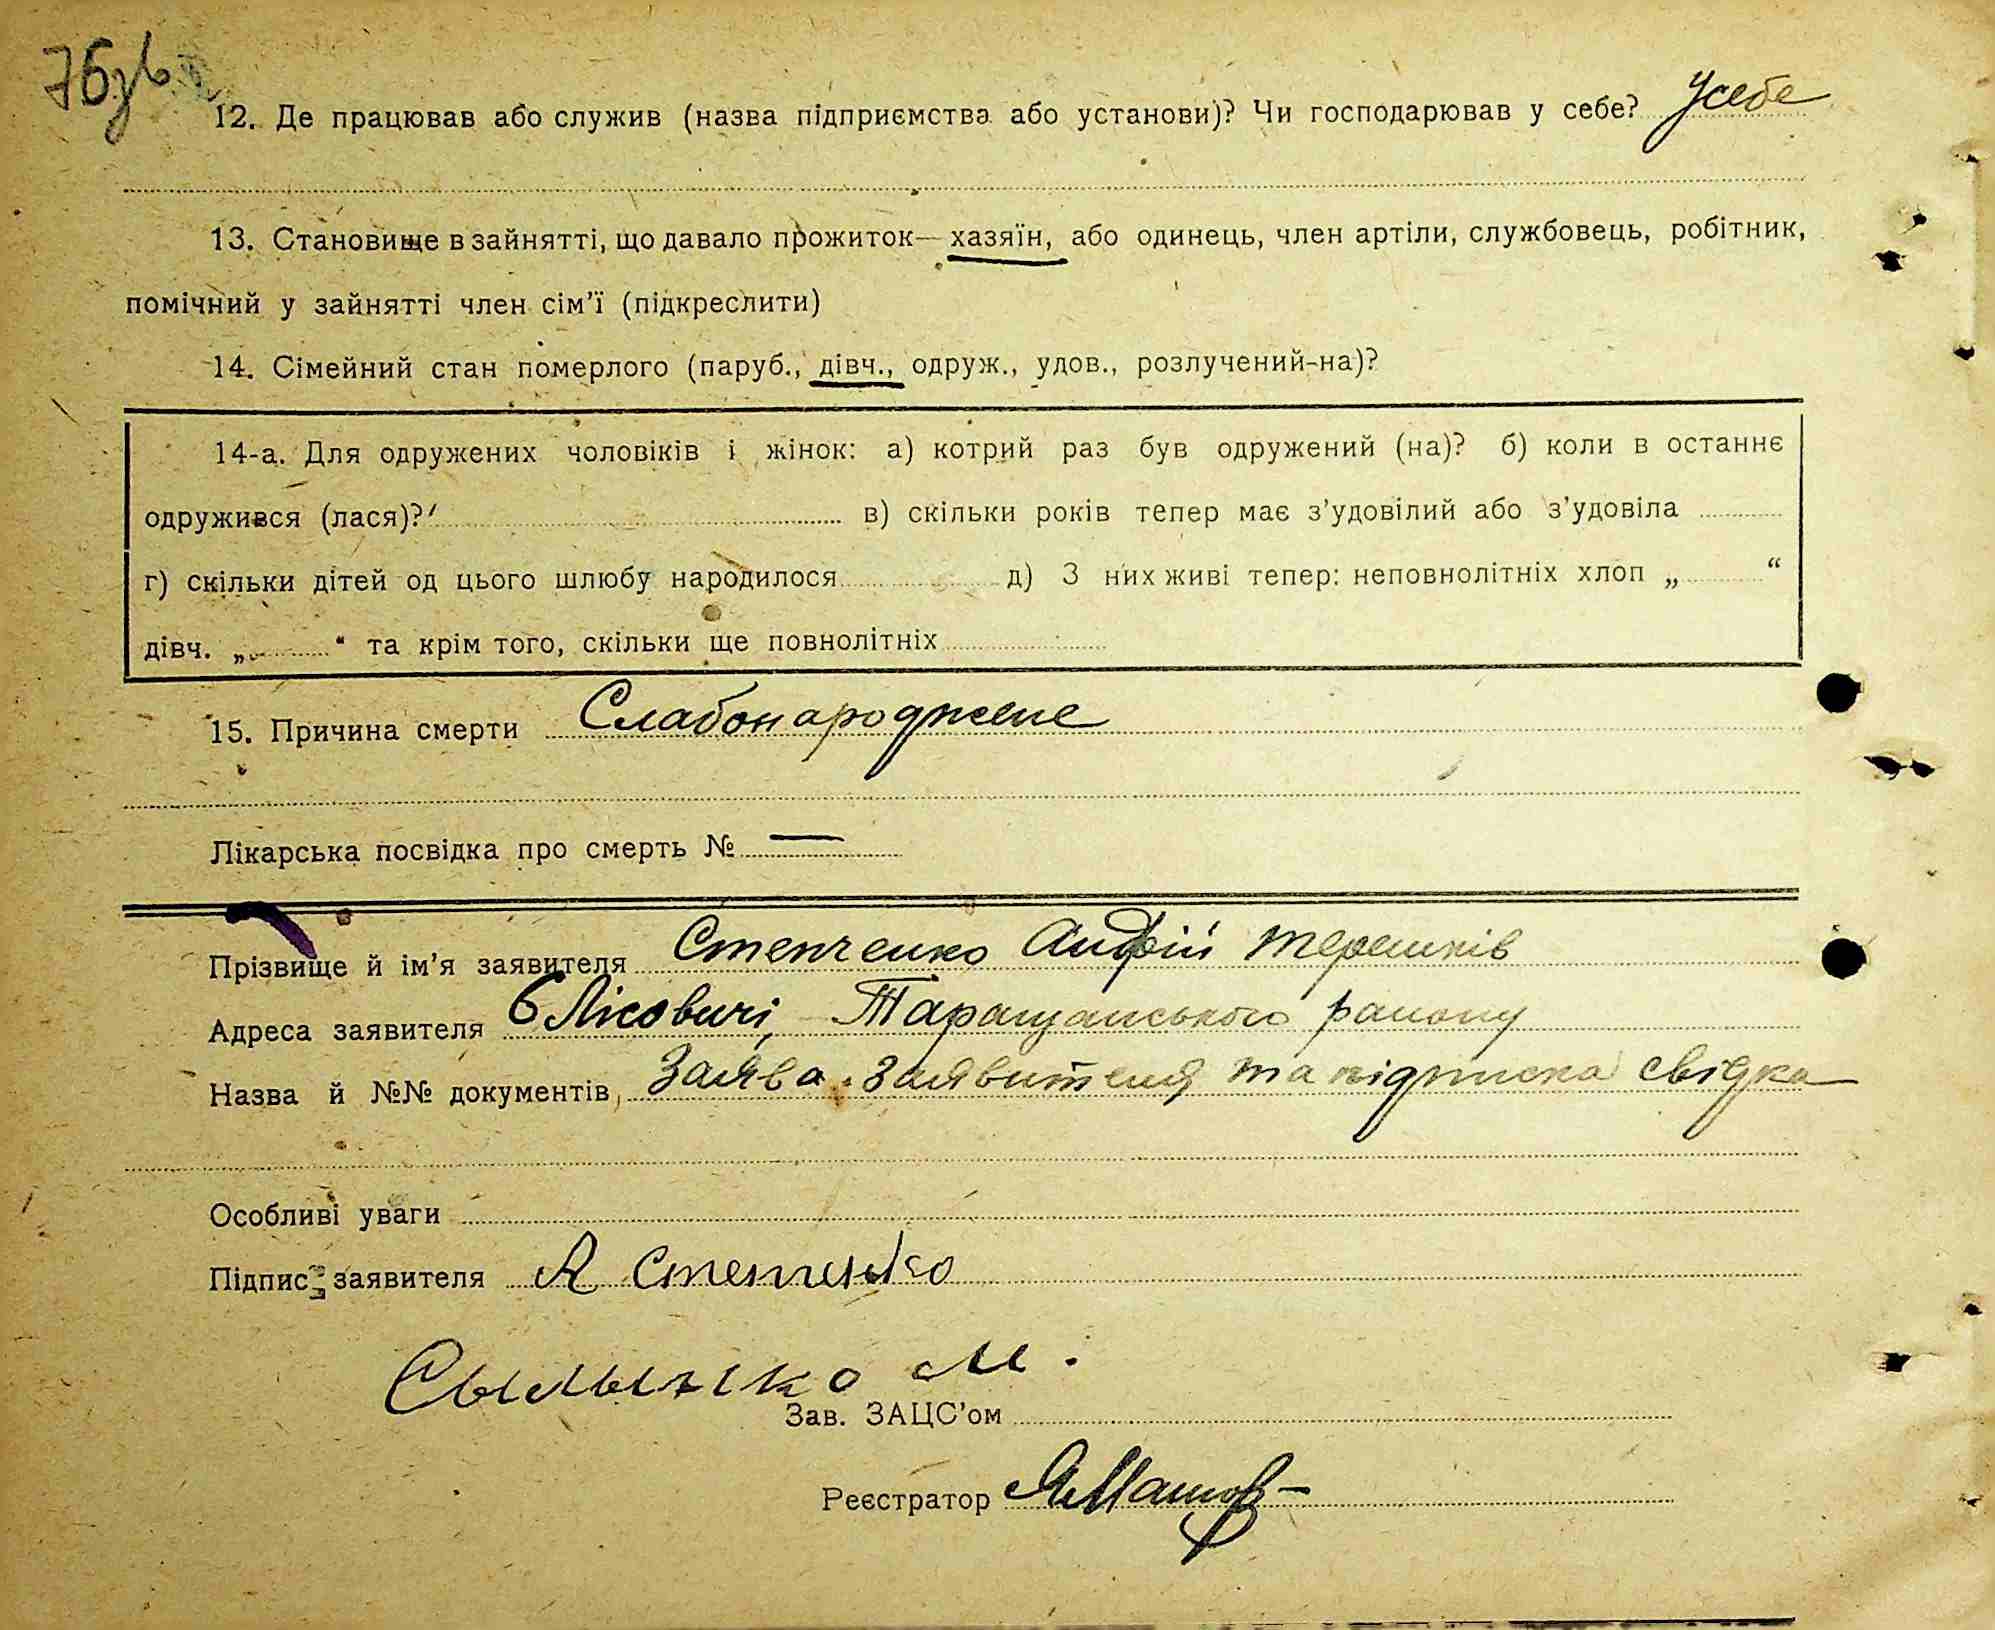 76зв.
12. Де працював або служив (назва підприємства або установи)? Чи господарював у себе? Усебе
13. Становище в зайнятті, що давало прожиток— хазяїн, або одинець, член артіли, службовець, робітник,
помічний у зайнятті член сім'ї (підкреслити)
14. Сімейний стан померлого (паруб., дівч., одруж., удов., розлучений-на)?
14-а. Для одружених чоловіків і жінок: а) котрий раз був одружений (на)? б) коли в останнє
одружився (лася)? в) скільки років тепер має з'удовілий або з'удовіла
г) скільки дітей од цього шлюбу народилося д) З них живі тепер: неповнолітніх хлоп „ “
дівч. „ “ та крім того, скільки ще повнолітніх
15. Причина смерти Слабонароджене
Лікарська посвідка про смерть № —
Прізвище й ім'я заявителя Степченко Андрій Терешків
Адреса заявителя с Лісовичі, Таращанського району
Назва й №№ документів, Заява заявителя та підписка свідка
Особливі уваги
Підпис заявителя А Степченко
М.
Зав. ЗАЦС'ом
Реєстратор